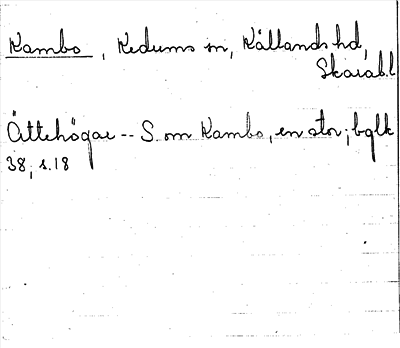 Kambo, Kedums sn, Kållands hd,
Skarab.l
Ättehögar -- S. om Kambo, en stor; bglk
38, s.18